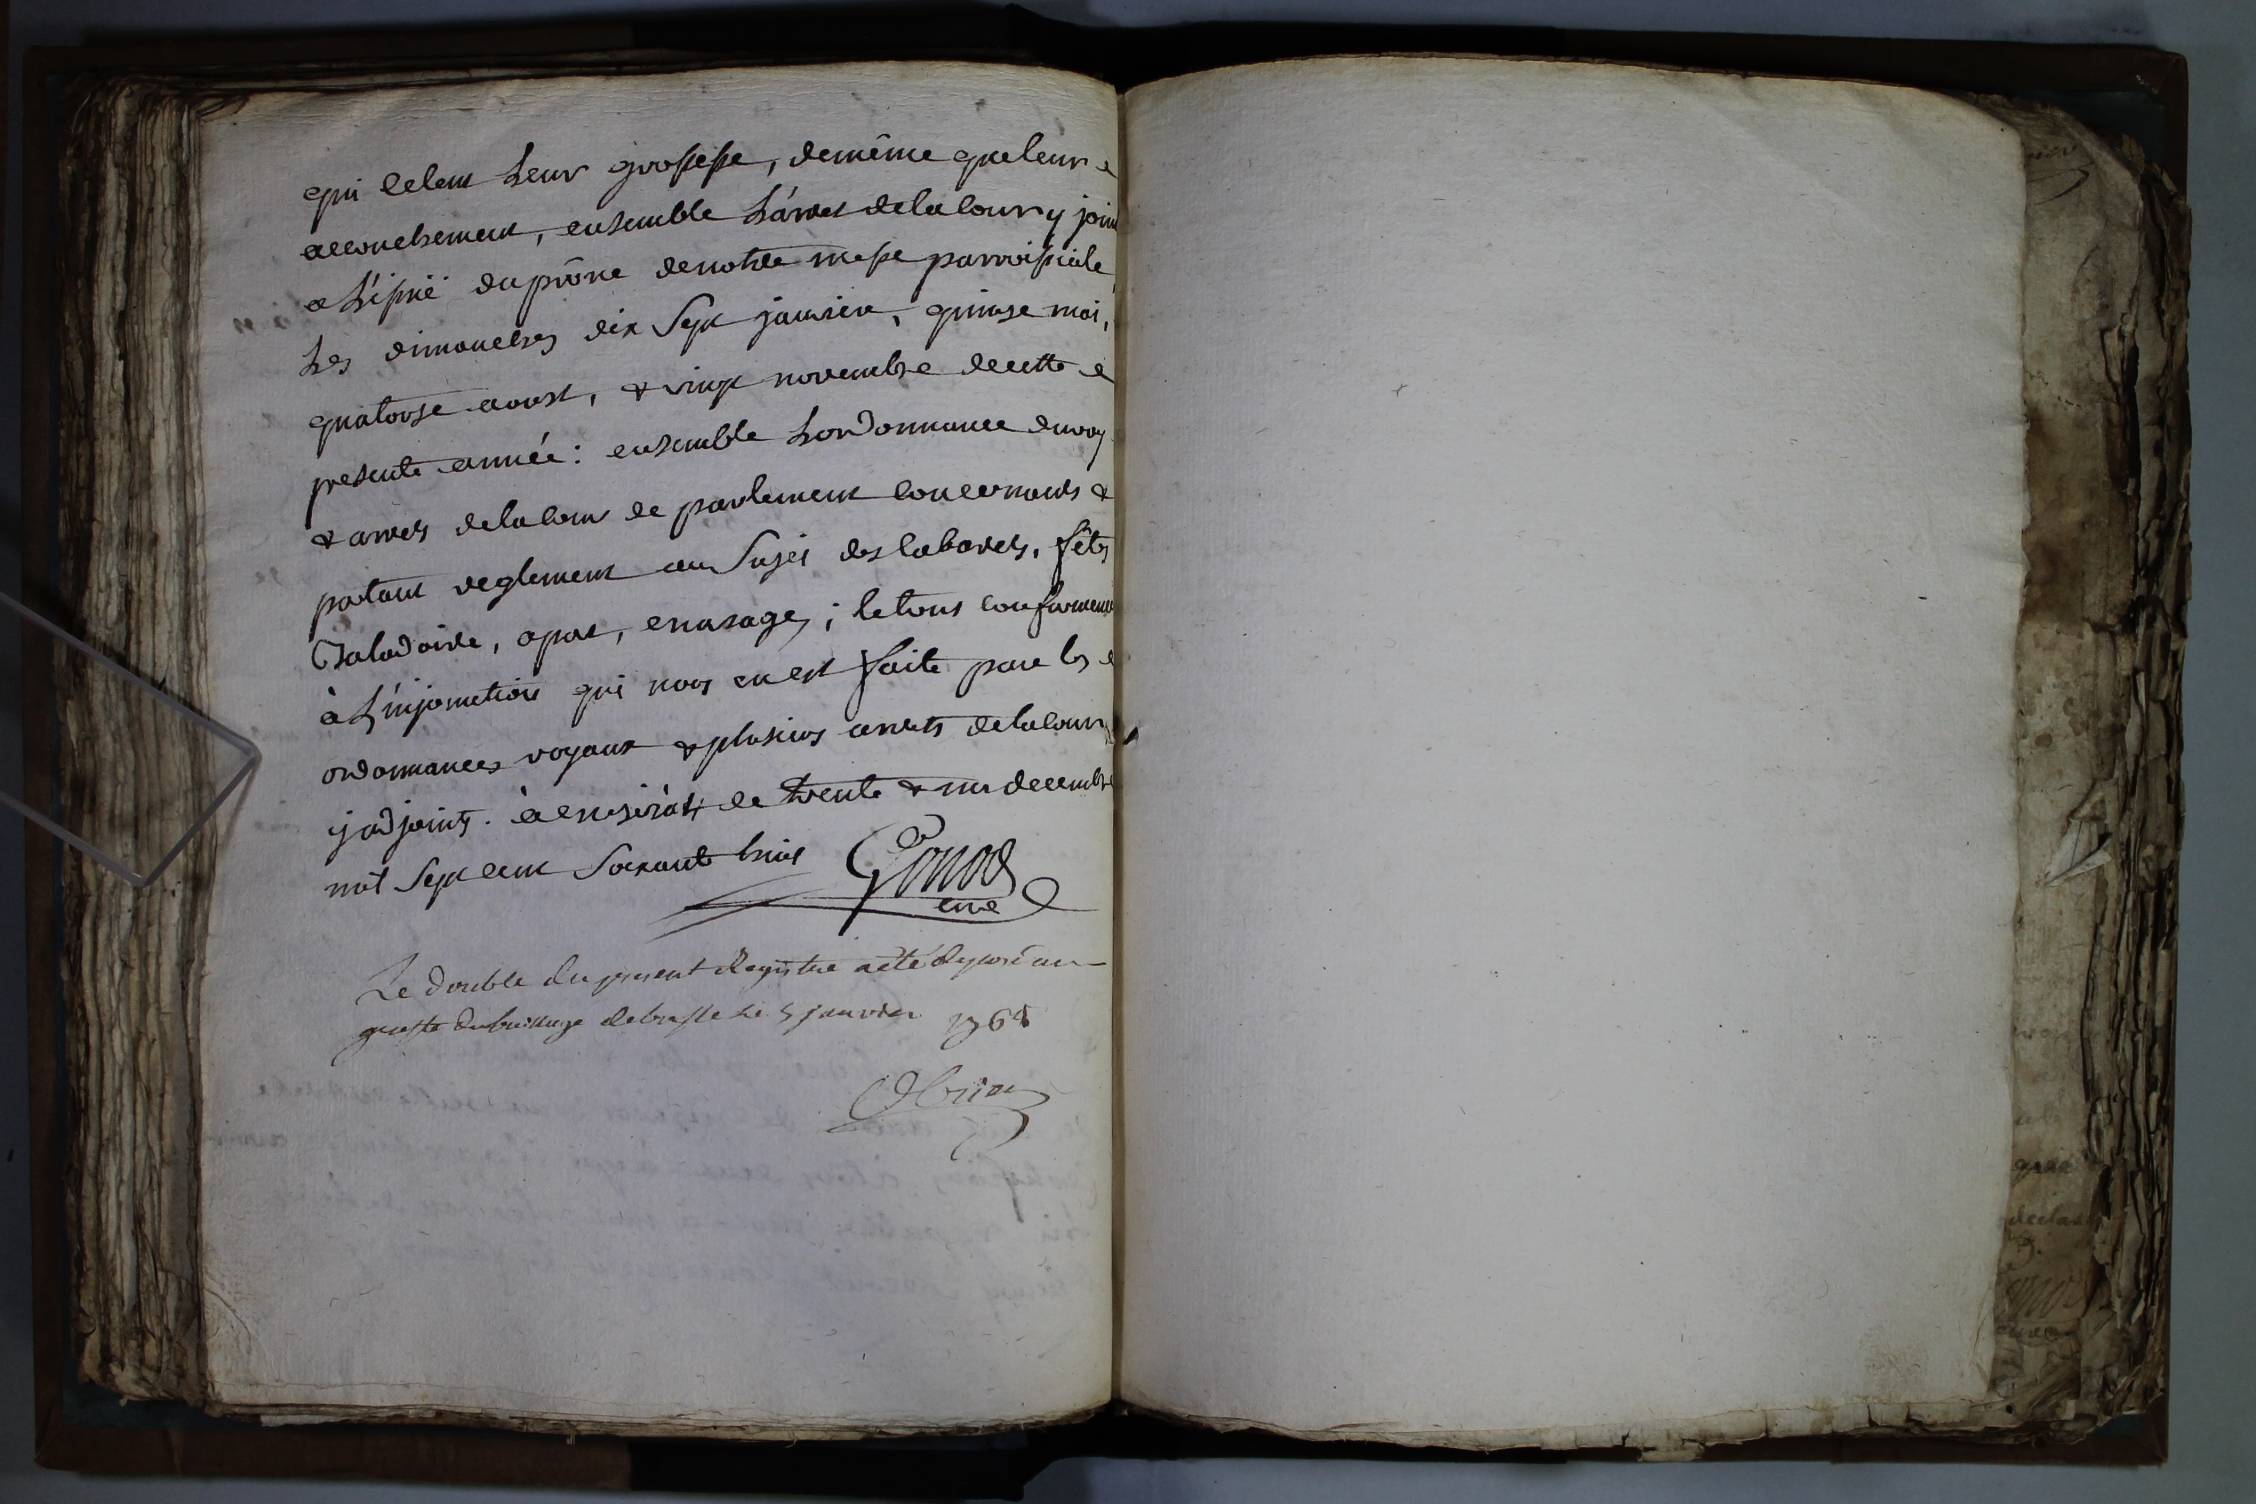 qui celent leur grossesse, demême que leur
accouchement, ensemble L'árret dela cour y joint
a L'issuë du prône de notre messe parroissiale
Les dimanches dix sept janvier, quinze mai,
quatorze aoust, & vingt novembre de cette
presente année: ensemble Lordonnance du roy
& arrets dela cour de parlement concernants &
portant reglement au sujet des cabarets, fêtes
baladoire, apot, en usages; le tout conformement
à L'injonction qui nous en est faite par les
ordonnances royaux & plusieurs arrets dela cour
y adjoints. à ce trente & un decembre
mil sept cent soixante trois Gonod
curé
Le double du present Registre a été deposé au
greffe du bailliage de bresse Le 5 janvier 1764